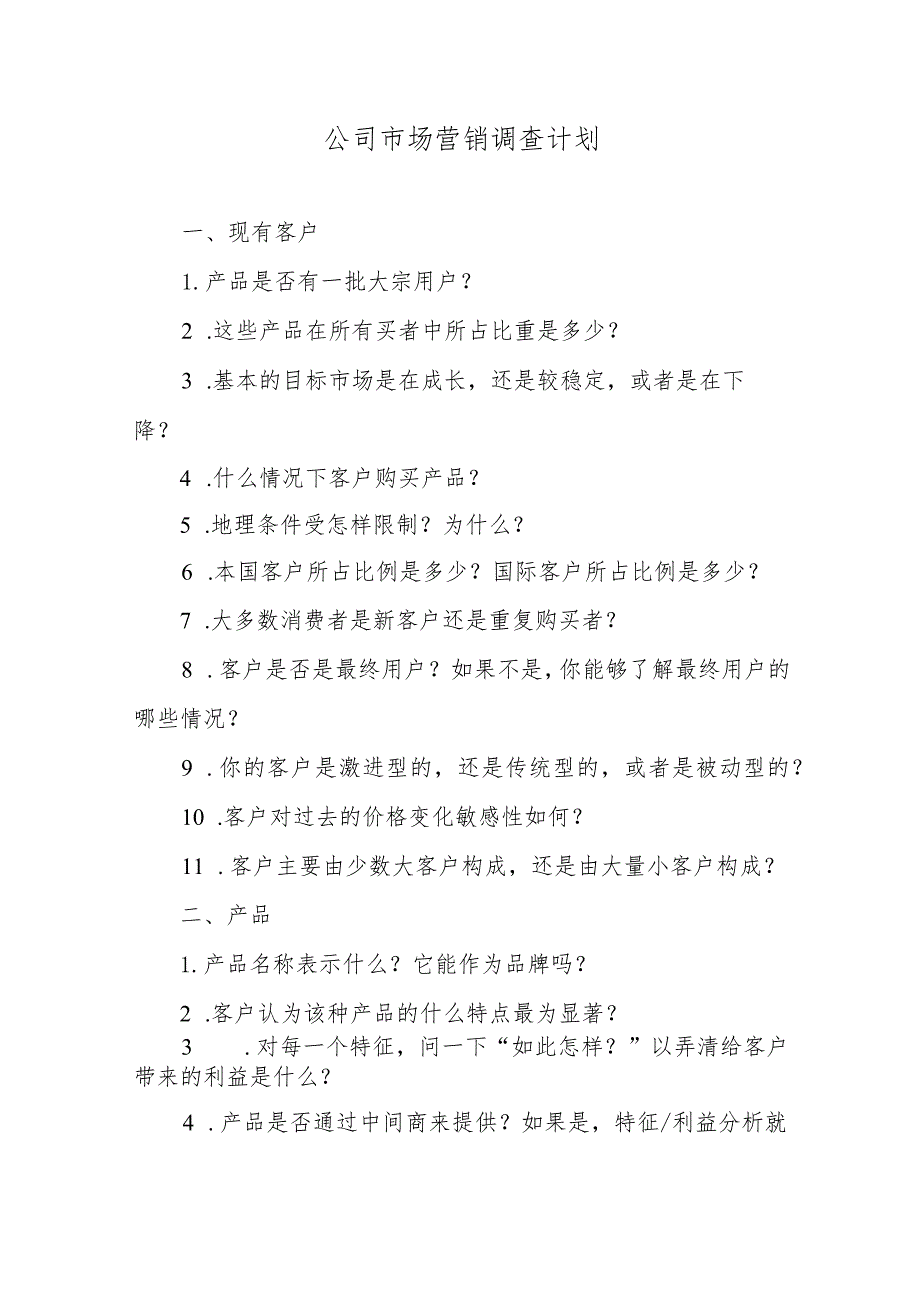 公司市场营销调查计划
一、现有客户
1. 产品是否有一批大宗用户？
2 .这些产品在所有买者中所占比重是多少？
3 .基本的目标市场是在成长，还是较稳定，或者是在下
降？
4 .什么情况下客户购买产品？
5 .地理条件受怎样限制？为什么？
6 .本国客户所占比例是多少？国际客户所占比例是多少？
7 .大多数消费者是新客户还是重复购买者？
8 . 客户是否是最终用户？如果不是，你能够了解最终用户的
哪些情况？
9 . 你的客户是激进型的，还是传统型的，或者是被动型的？
10 .客户对过去的价格变化敏感性如何？
11 . 客户主要由少数大客户构成，还是由大量小客户构成？
二、产品
1. 产品名称表示什么？它能作为品牌吗？
2 .客户认为该种产品的什么特点最为显著？
3 . 对每一个特征，问一下“如此怎样？”以弄清给客户
带来的利益是什么？
4 . 产品是否通过中间商来提供？如果是，特征/利益分析就